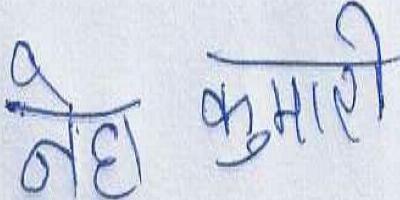 नेहा कुमारी